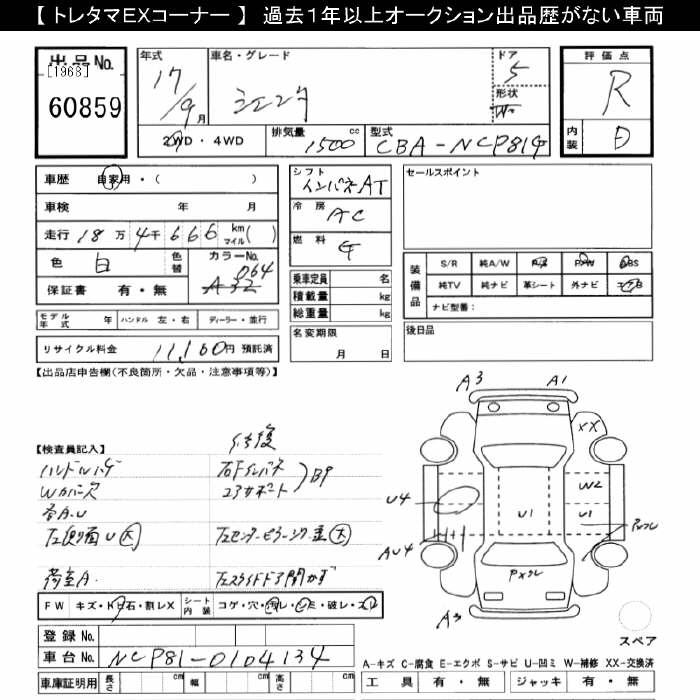 【 トレタマEXコーナー 】 過去1年以上オークション出品歴がない車両
出品No.
[1968]
60859
年式
17/9月
車名・グレード
シエンタ
ドア
5
形状
W
2WD・4WD
排気量
1500 cc
型式
CBA-NCP81G
評価点
R
内装
D
車歴 自家用・( )
車検 年 月
走行 18万4千666 km マイル( )
色 白 色替 カラーNo. 064
保証書 有・無
モデル年式 年 ハンドル 左・右 ディーラー・並行
リサイクル料金 11,160円 預託済
シフト
インパネAT
冷房
AC
燃料
G
乗車定員 名
積載量 kg
総重量 kg
名変期限
月 日
セールスポイント
装備品
S/R 純A/W P/S P/W ABS
純TV 純ナビ 革シート 外ナビ エアB
ナビ型番:
後日品
【出品店申告欄(不良箇所・欠品・注意事項等)】
【検査員記入】
修復
ハンドルハゲ
Wカバー欠
各A.U
左側面U大
荷室A.
右Fインパネ
コアサポート
B9
左センターピラーインナー歪大
左スライドドア開かず
FW キズ・トビ石・割レX シート内装 コゲ・穴・汚レ・シミ・破レ・スレ
登録No.
車台No. NCP81-0104134
車庫証明用 長さ cm 幅 cm 高さ cm
A3
A1
XX
U4
W2
U1
U1
AU4
Pメクレ
A3
スペア
A-キズ C-腐食 E-エクボ S-サビ U-凹ミ W-補修 XX-交換済
工具 有・無 ジャッキ 有・無